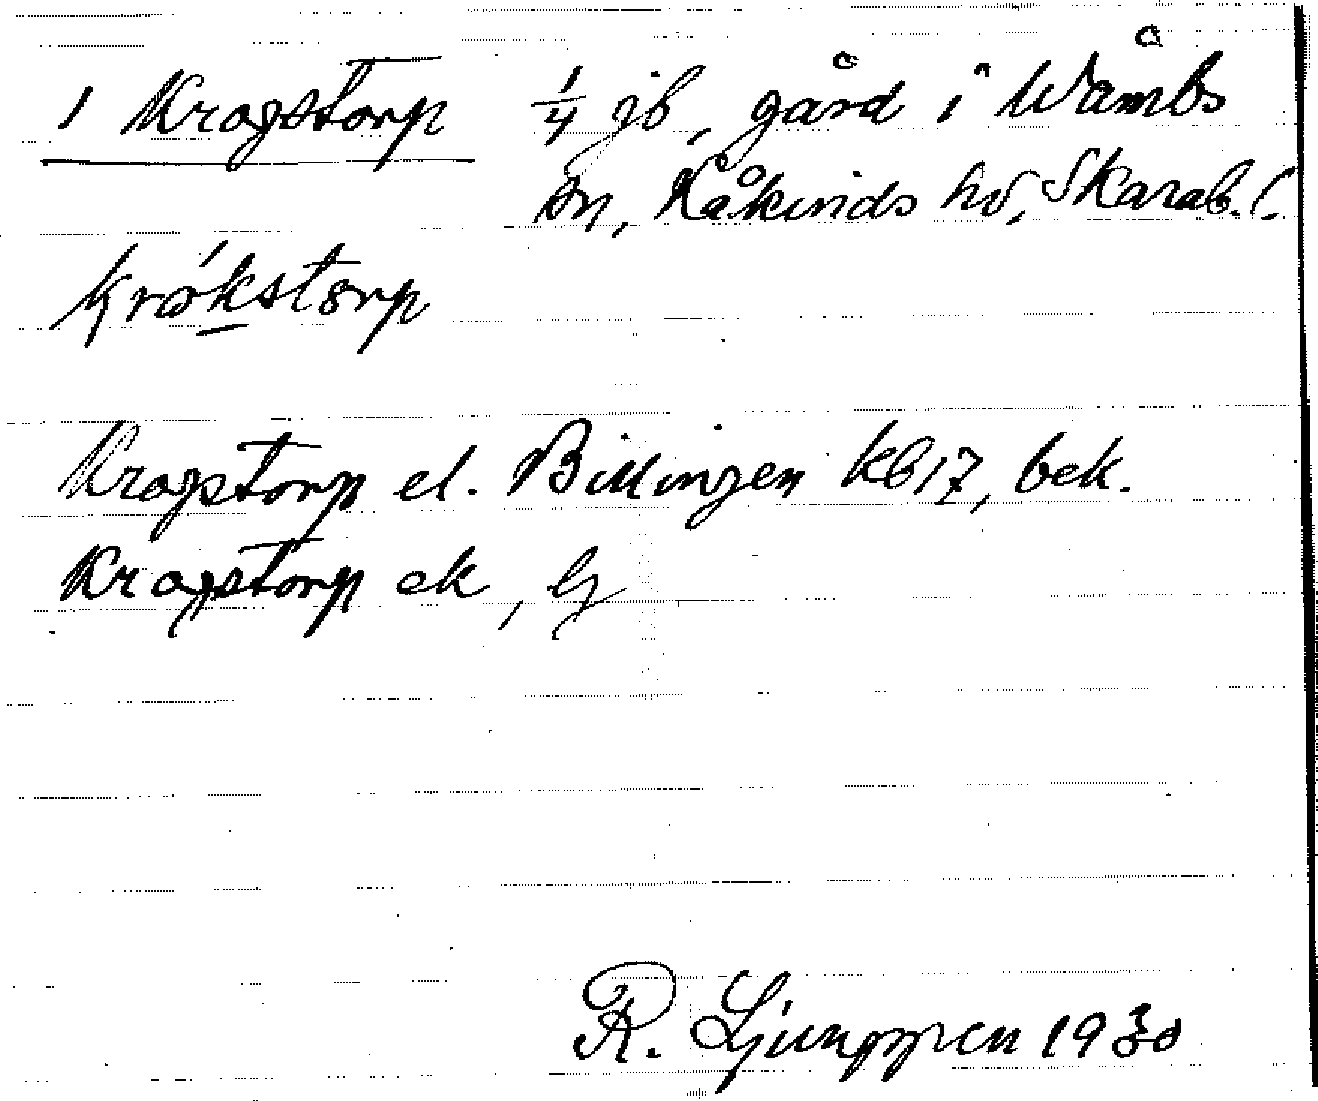 1 Kragstorp 1/4 jb, gård i Wåmbs
sn, Kåkinds hd, Skarab. l.
krákstorp
Kragstorp el. Billingen kb17, bek.
Kragstorp ek,
R. Ljunggren 1930